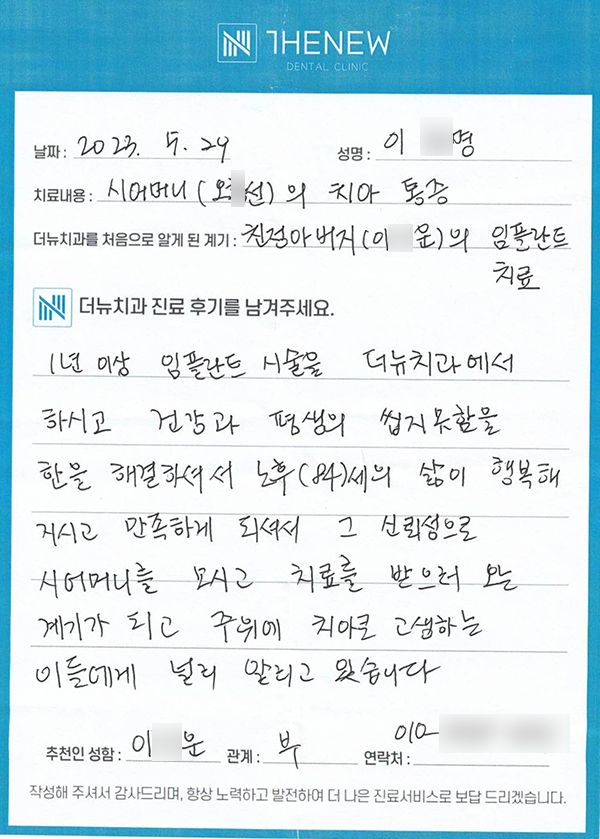 THENEW
DENTAL CLINIC
날짜 : 2023. 5. 29 성명 : 이 명
치료내용 : 시어머니(오 선)의 치아 통증
더뉴치과를 처음으로 알게 된 계기 : 친정아버지(이 운)의 임플란트
치료
더뉴치과 진료 후기를 남겨주세요.
1년 이상 임플란트 시술을 더뉴치과에서
하시고 건강과 평생의 씹지못함을
한을 해결하셔서 노후(84)세의 삶이 행복해
지시고 만족하게 되셔서 그 신뢰성으로
시어머니를 모시고 치료를 받으러 오는
계기가 되고 주위에 치아로 고생하는
이들에게 널리 알리고 있습니다
추천인 성함 : 이 운 관계 : 부 연락처 : 010-
작성해 주셔서 감사드리며, 항상 노력하고 발전하여 더 나은 진료서비스로 보답 드리겠습니다.